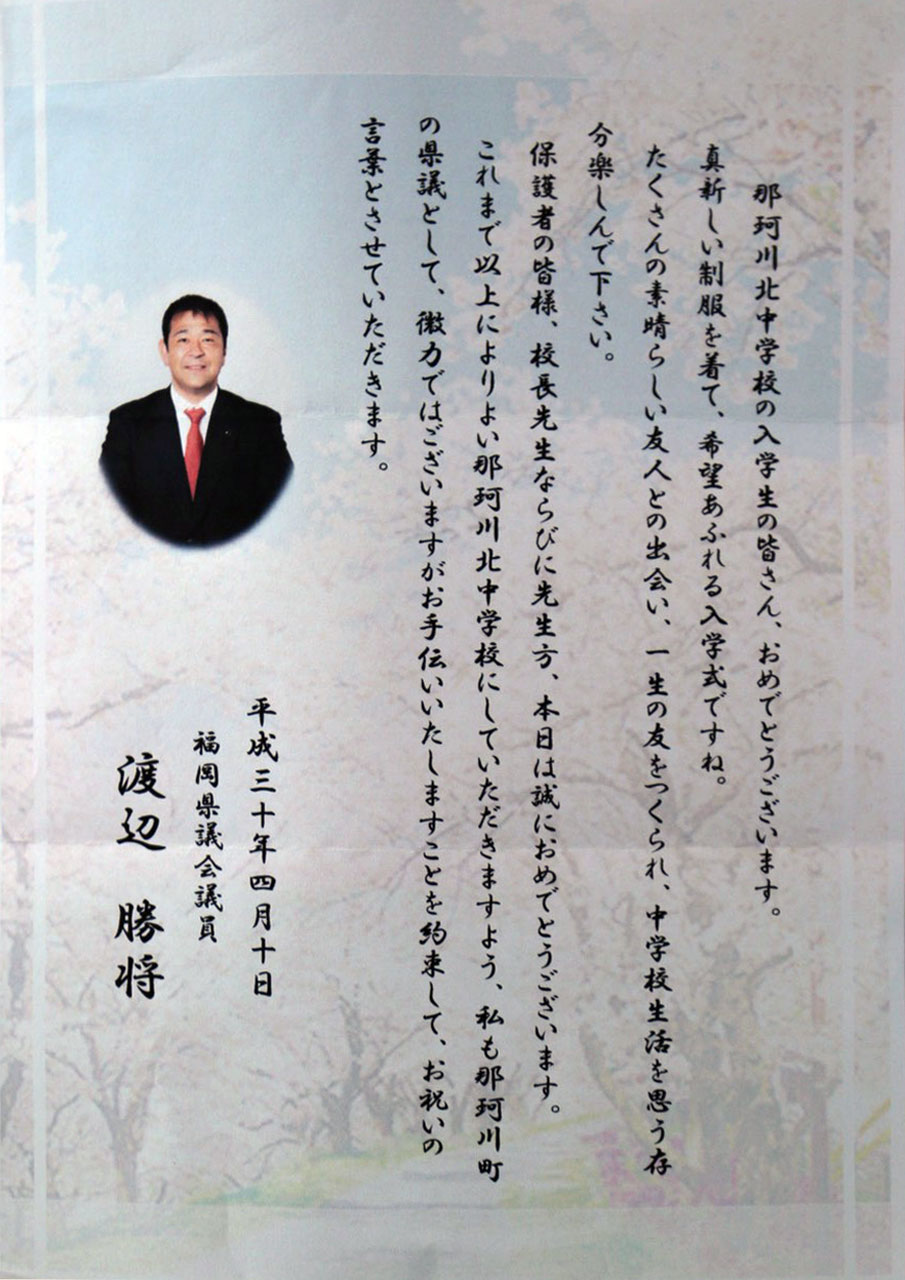 那珂川北中学校の入学生の皆さん、おめでとうございます。
真新しい制服を着て、希望あふれる入学式ですね。
たくさんの素晴らしい友人との出会い、一生の友をつくられ、中学校生活を思う存
分楽しんで下さい。
保護者の皆様、校長先生ならびに先生方、本日は誠におめでとうございます。
これまで以上によりよい那珂川北中学校にしていただきますよう、私も那珂川町
の県議として、微力ではございますがお手伝いいたしますことを約束して、お祝いの
言葉とさせていただきます。
平成三十年四月十日
福岡県議会議員
渡辺 勝将